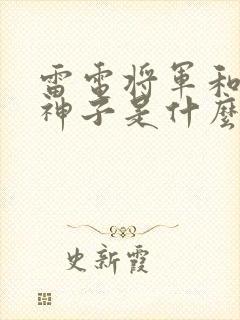 雷電将軍和
神子是什麼
史新霞